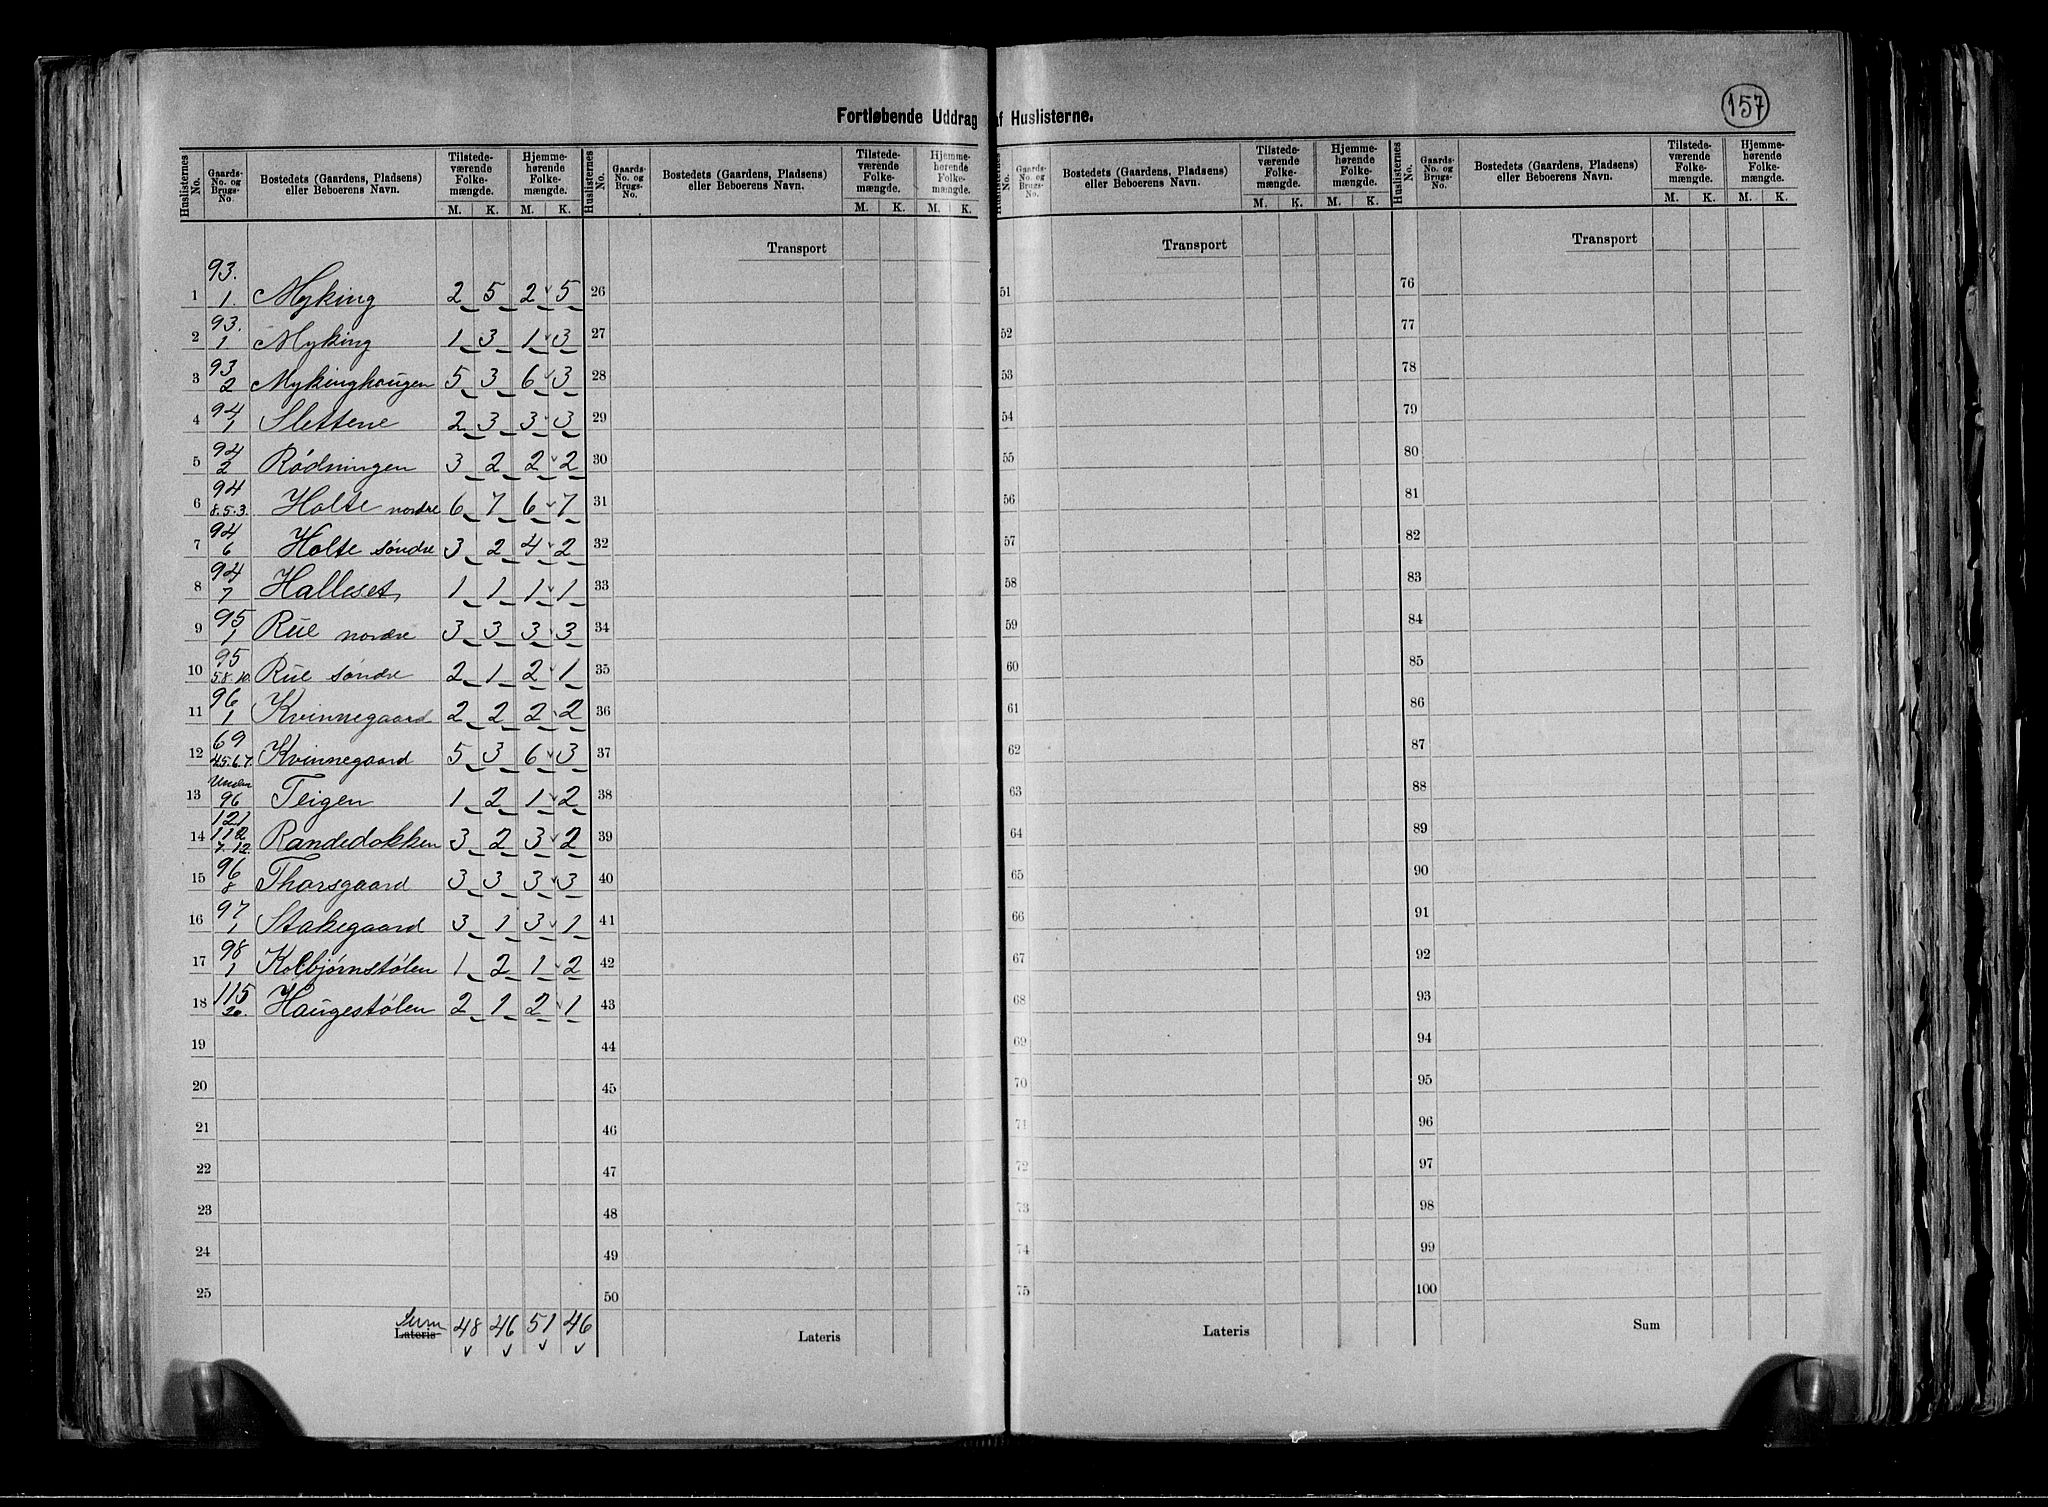 157
Fortløbende Uddrag af Huslisterne.
Huslisternes No. | Gaards-No. og Brugs-No. | Bostedets (Gaardens, Pladsens) eller Beboerens Navn. | Tilstedeværende Folkemængde. M. K. | Hjemmehørende Folkemængde. M. K.
Huslisternes No. | Gaards-No. og Brugs-No. | Bostedets (Gaardens, Pladsens) eller Beboerens Navn. | Tilstedeværende Folkemængde. M. K. | Hjemmehørende Folkemængde. M. K.
Huslisternes No. | Gaards-No. og Brugs-No. | Bostedets (Gaardens, Pladsens) eller Beboerens Navn. | Tilstedeværende Folkemængde. M. K. | Hjemmehørende Folkemængde. M. K.
Huslisternes No. | Gaards-No. og Brugs-No. | Bostedets (Gaardens, Pladsens) eller Beboerens Navn. | Tilstedeværende Folkemængde. M. K. | Hjemmehørende Folkemængde. M. K.
Transport Transport Transport
1 93. 1. Myking 2 5 2 5 26 51 76
2 93. 1 Myking 1 3 1 3 27 52 77
3 93 2 Mykinghaugen 5 3 6 3 28 53 78
4 94 1 Slettene 2 3 3 3 29 54 79
5 94 2 Rødningen 3 2 2 2 30 55 80
6 94 8.5.3. Holte nordre 6 7 6 7 31 56 81
7 94 6 Holte søndre 3 2 4 2 32 57 82
8 94 7 Halleset 1 1 1 1 33 58 83
9 95 1 Rue nordre 3 3 3 3 34 59 84
10 95 5.8.10. Rue søndre 2 1 2 1 35 60 85
11 96 1 Kvinnegaard 2 2 2 2 36 61 86
12 69 4.5.6.7. Kvinnegaard 5 3 6 3 37 62 87
13 Under 96 Teigen 1 2 1 2 38 63 88
14 121 112 7. 12. Randedokken 3 2 3 2 39 64 89
15 96 8 Thorsgaard 3 3 3 3 40 65 90
16 97 1 Stakegaard 3 1 3 1 41 66 91
17 98 1 Kolbjørnstølen 1 2 1 2 42 67 92
18 115 20. Haugestølen 2 1 2 1 43 68 93
19 44 69 94
20 45 70 95
21 46 71 96
22 47 72 97
23 48 73 98
24 49 74 99
25 50 75 100
Sum Lateris 48 46 51 46 Lateris Lateris Sum